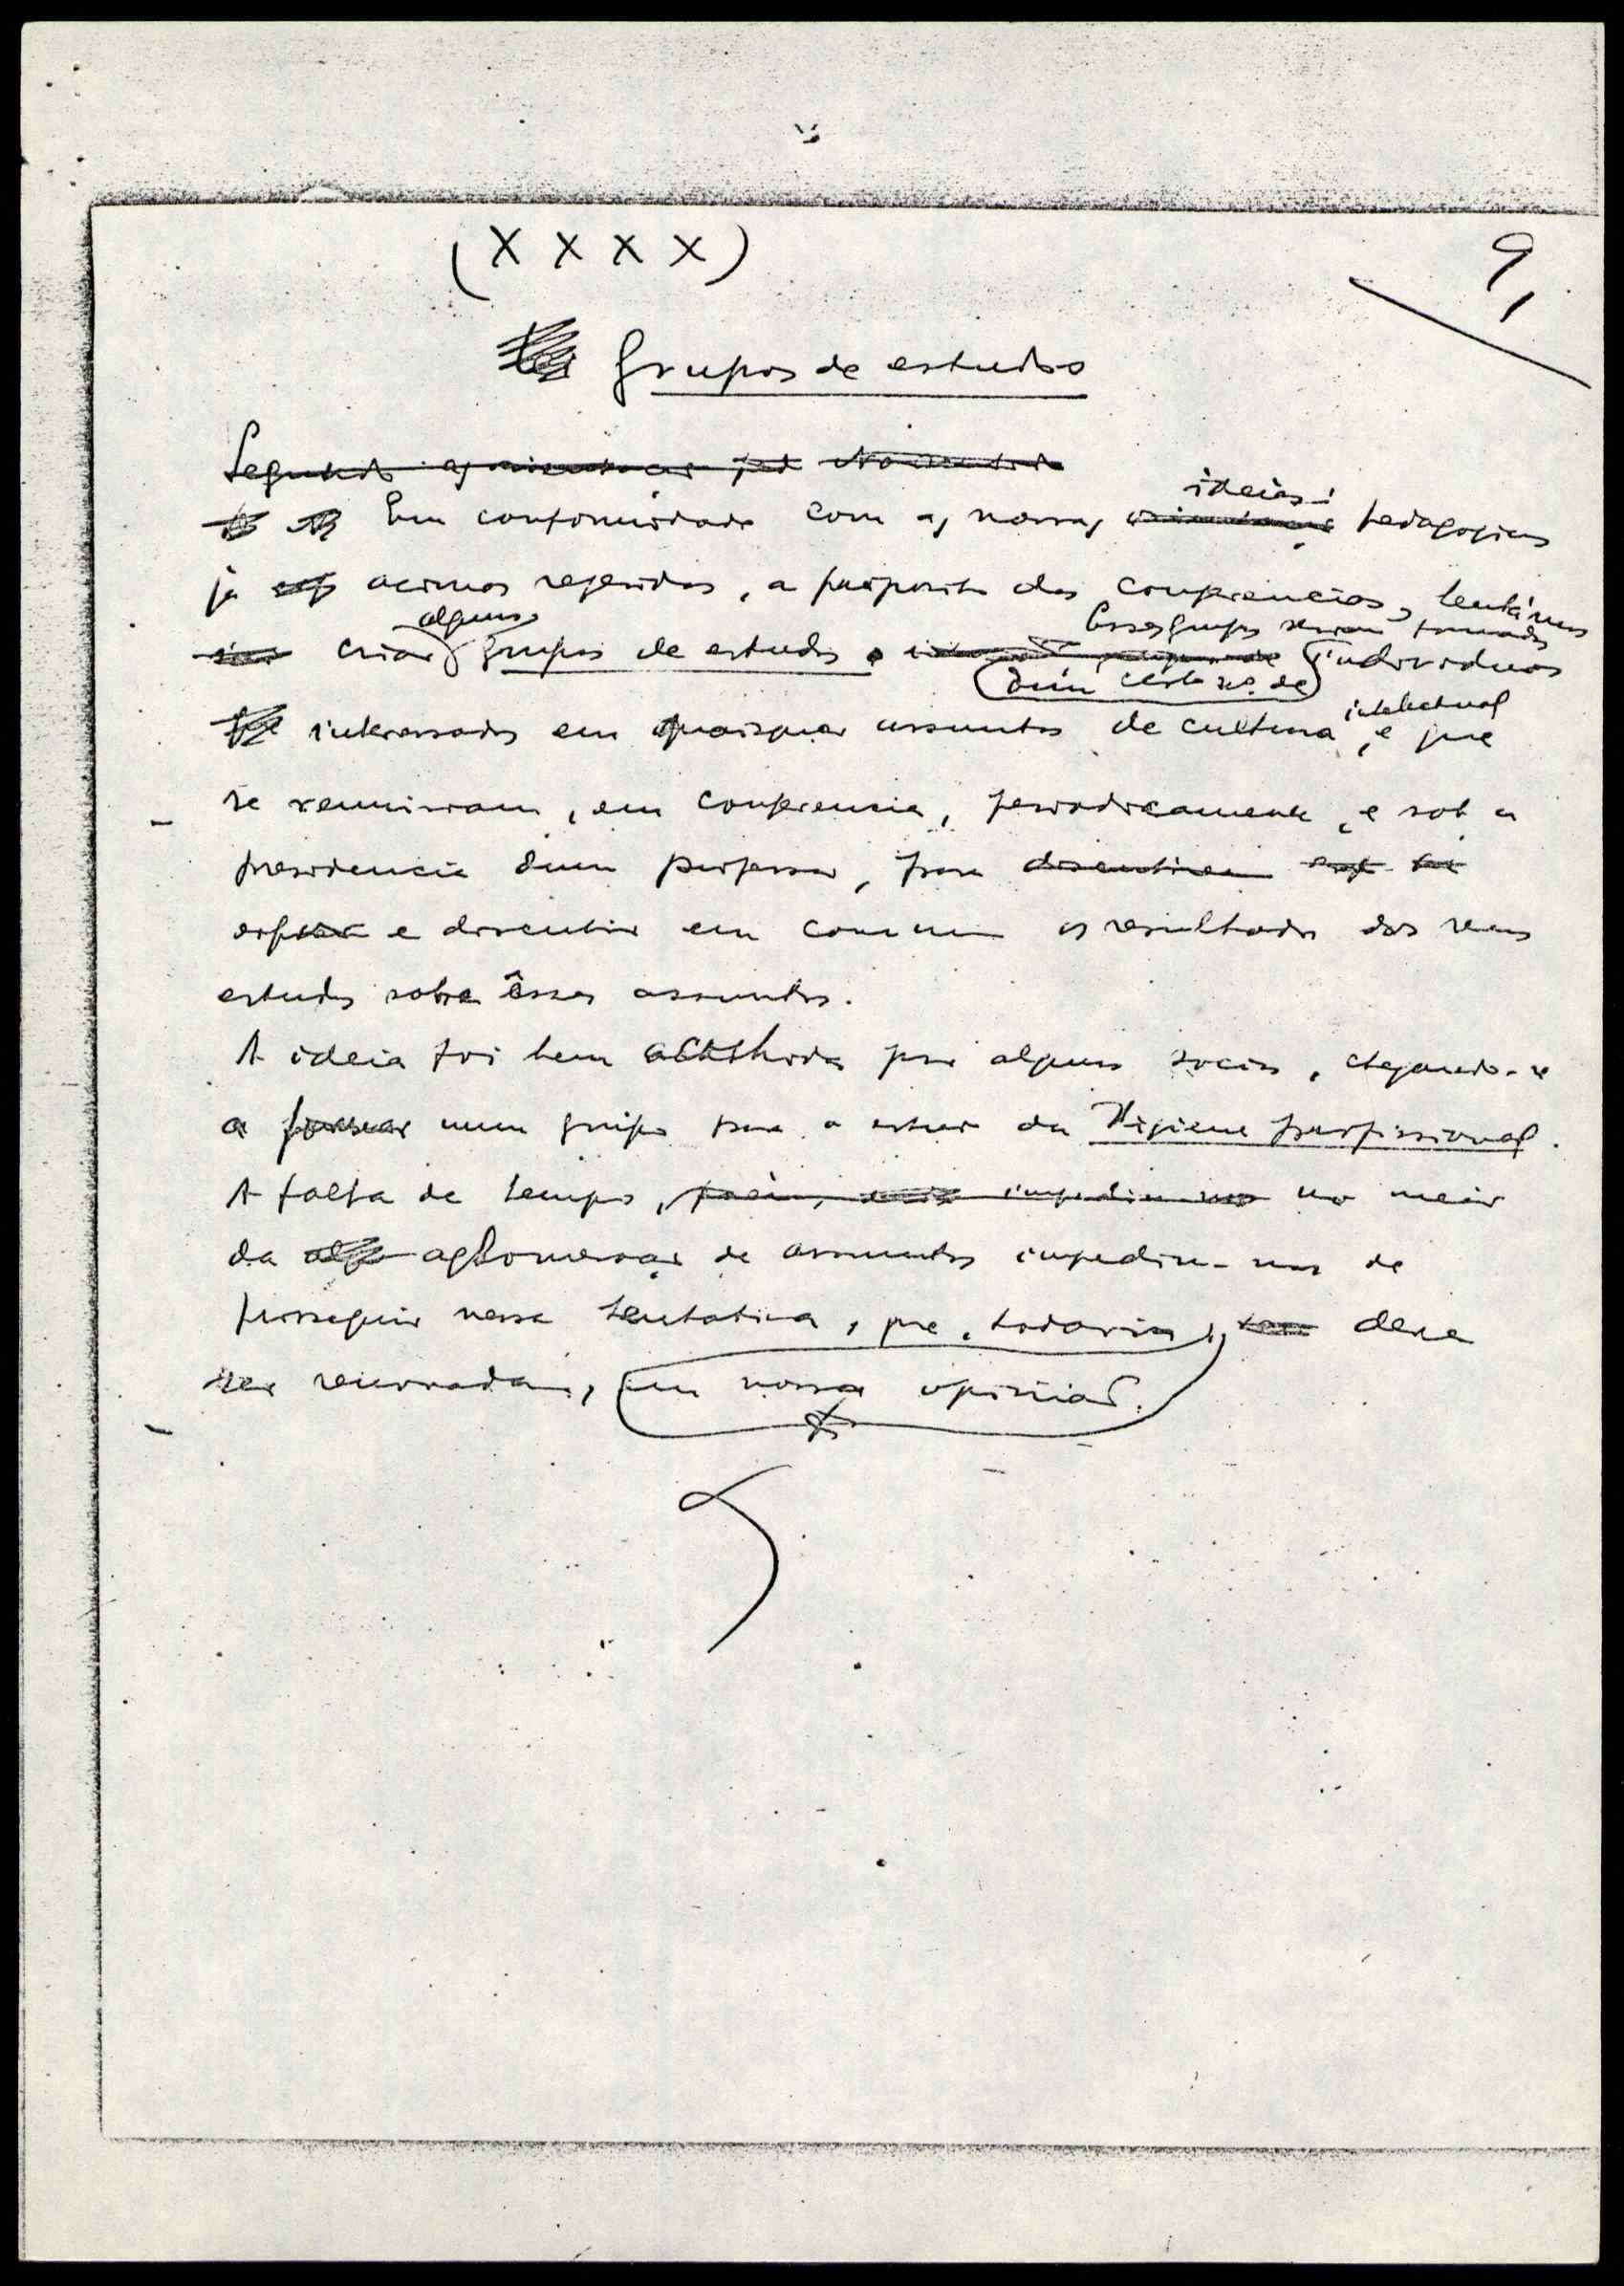 (X X X X)
9,
Grupos de estudos
Segundo as
ideias
Em conformidade com as nossas pedagogicas
já acima referidas, a proposito das conferencias, tentámos
alguns Esses grupos seriam formados
criar grupos de estudos individuos
dum certo nº. de
interessados em quaisquer assuntos de cultura intelectual, e que
se reunissem, em conferencia, periodicamente, e sob a
presidencia dum professor, para discutirem
e discutir em comum os resultados dos seus
estudos sobre êsses assuntos.
A ideia foi bem acolhida por alguns socios, chegando-se
a formar um grupo para o estudo da Higiene profissional.
A falta de tempo, porém, impediu-nos no meio
da aglomeração de assuntos impediu-nos de
proseguir nessa tentativa, que, todavia, deve
ser renovada, em nossa opinião.